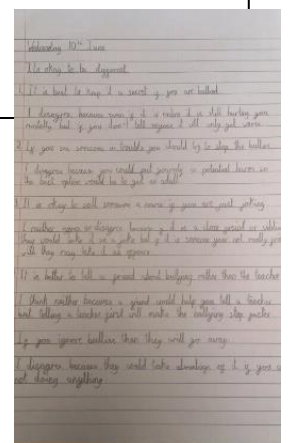 Wednesday 10th June
Its okay to be different
1. It is best to keep it a secret if you are bullied
I disagree because even if it is online it is still hurting you
mentally but if you don't tell anyone it will only get worse
2. If you see someone in trouble you should try to stop the bullies
I disagree because you could put yourself in potential harm so
the best option would be to get an adult
3. It is okay to call someone a name if you are just joking
I neither agree or disagree because if it is a close friend or sibling
they would take it as a joke but if it is someone your not really
with they may take it as
It is better to tell a friend about bullying rather than the teacher
I think neither because a friend would help you tell a teacher
and telling a teacher first will make the bullying stop faster
If you ignore bullies than they will go away
I disagree because they would take advantage of it if your
not doing anything